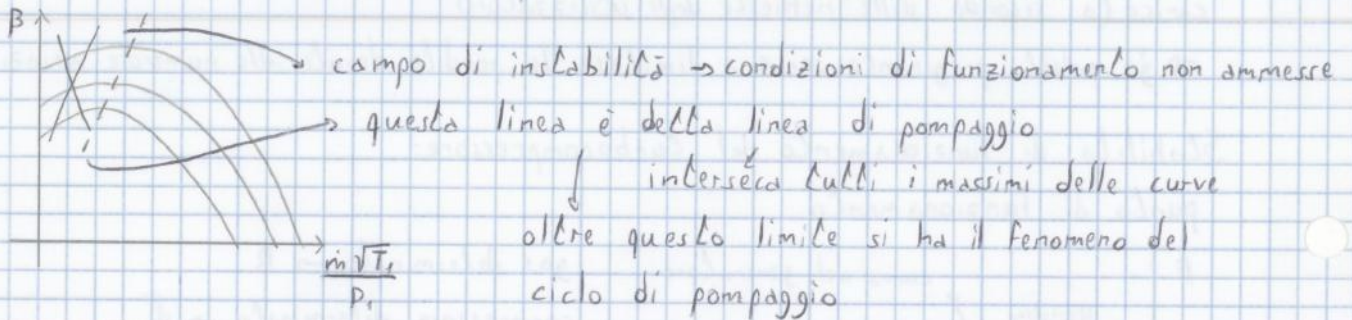 β
campo di instabilità → condizioni di funzionamento non ammesse
questa linea è detta linea di pompaggio
interseca tutti i massimi delle curve
oltre questo limite si ha il fenomeno del
ciclo di pompaggio
ṁ√T₁
p₁